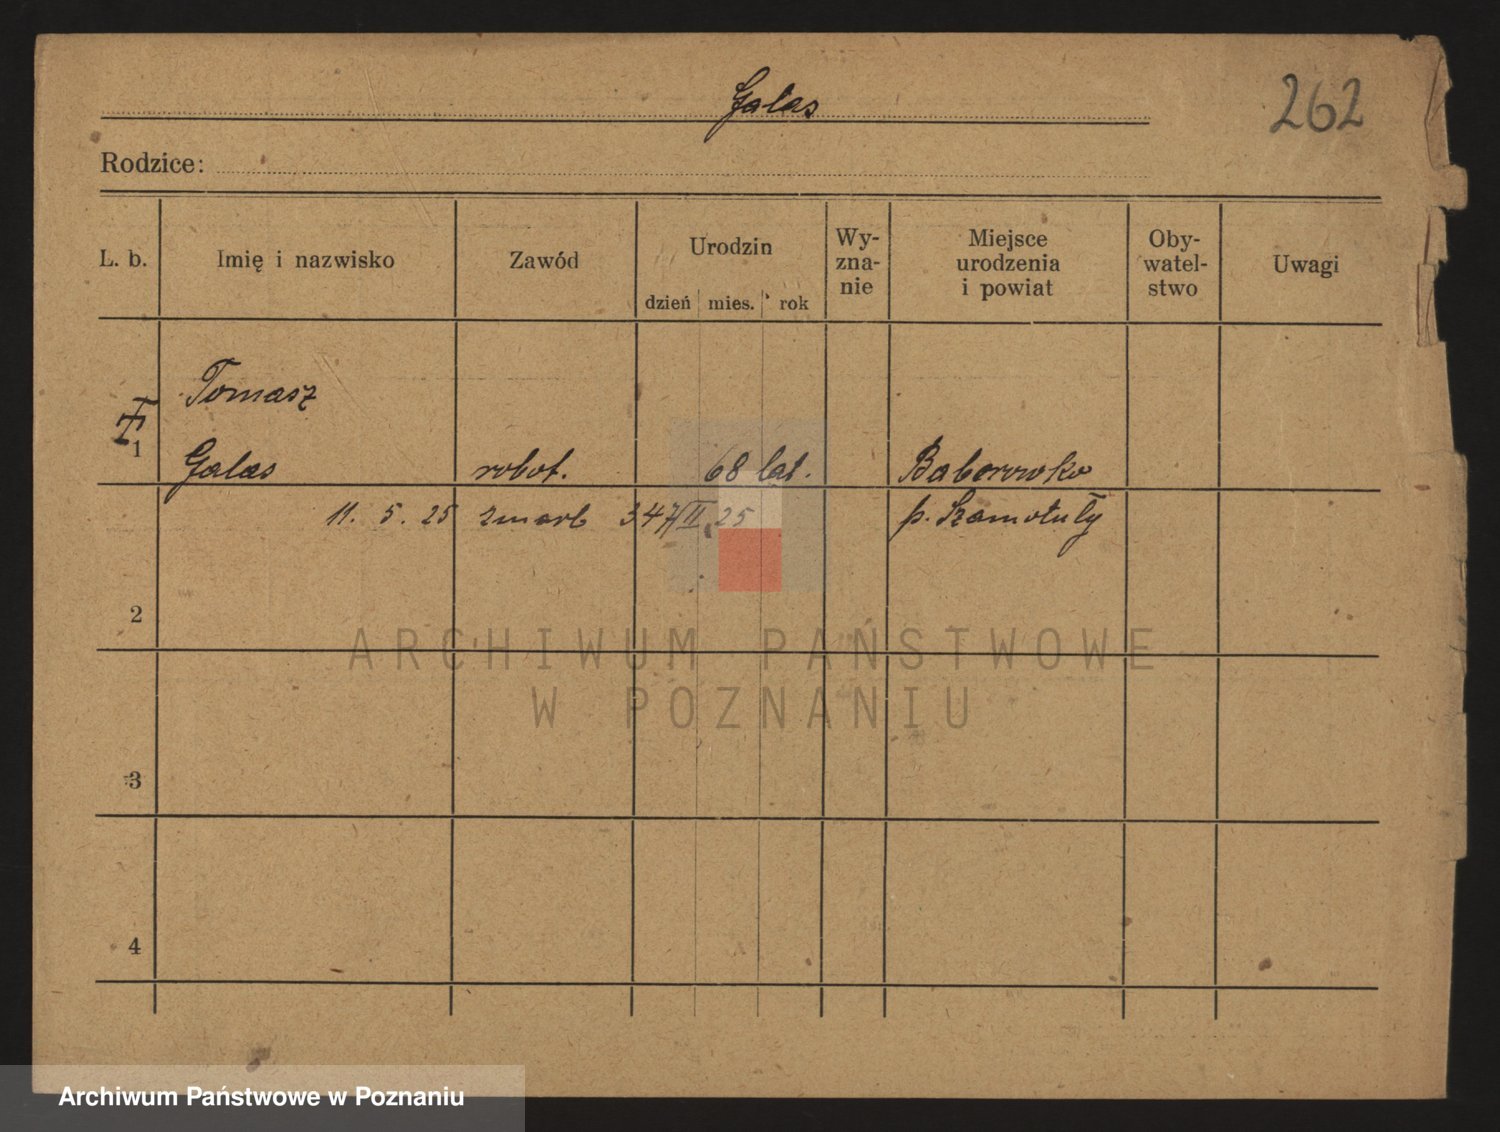 Galas
262
Rodzice:
L. b. Imię i nazwisko Zawód Urodzin dzień mies. rok Wy-zna-nie Miejsce urodzenia i powiat Oby-watel-stwo Uwagi
Tomasz
1 Galas robot. 68 lat. Baborowko
11. 5. 25 zmarł 347/II 25 p. Szamotuły
2
ARCHIWUM PAŃSTWOWE
W POZNANIU
3
4
Archiwum Państwowe w Poznaniu